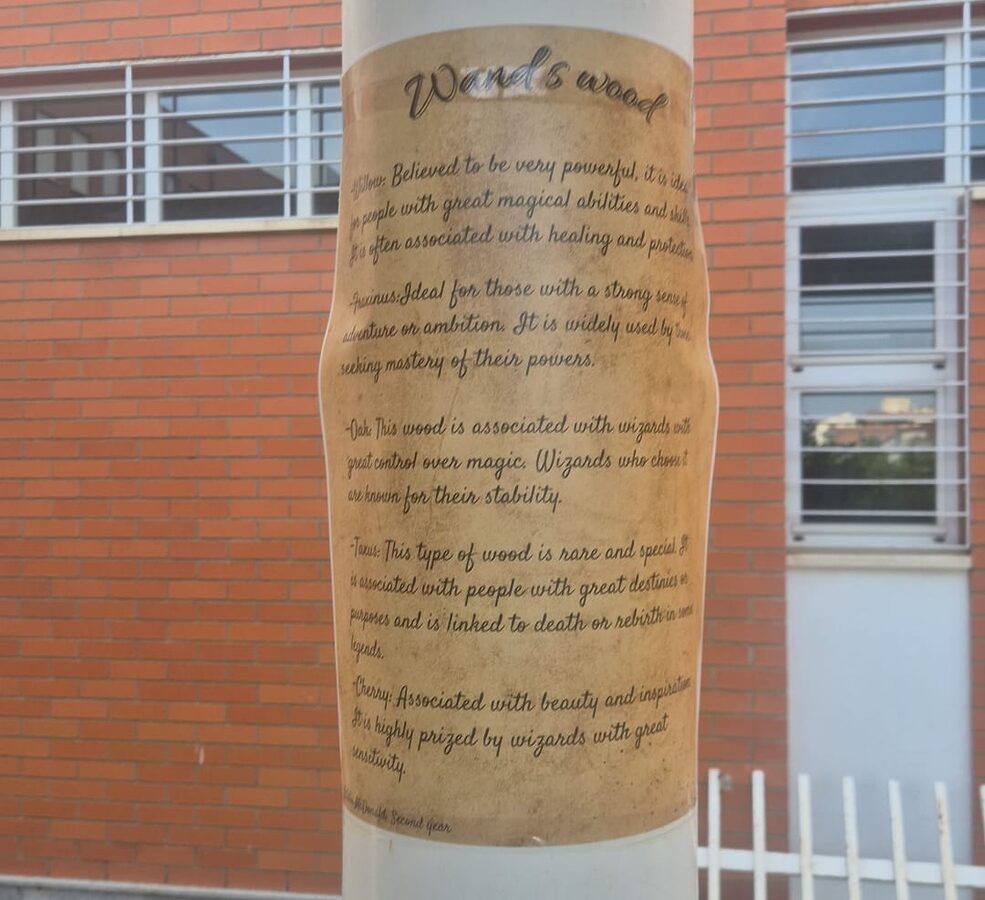 Wand's wood
-Willow: Believed to be very powerful, it is ideal
for people with great magical abilities and skills.
It is often associated with healing and protection.
-Fraxinus:Ideal for those with a strong sense of
adventure or ambition. It is widely used by those
seeking mastery of their powers.
-Oak: This wood is associated with wizards with
great control over magic. Wizards who choose it
are known for their stability.
-Taxus: This type of wood is rare and special. It
is associated with people with great destinies or
purposes and is linked to death or rebirth in some
legends.
-Cherry: Associated with beauty and inspiration.
It is highly prized by wizards with great
sensitivity.
Second year